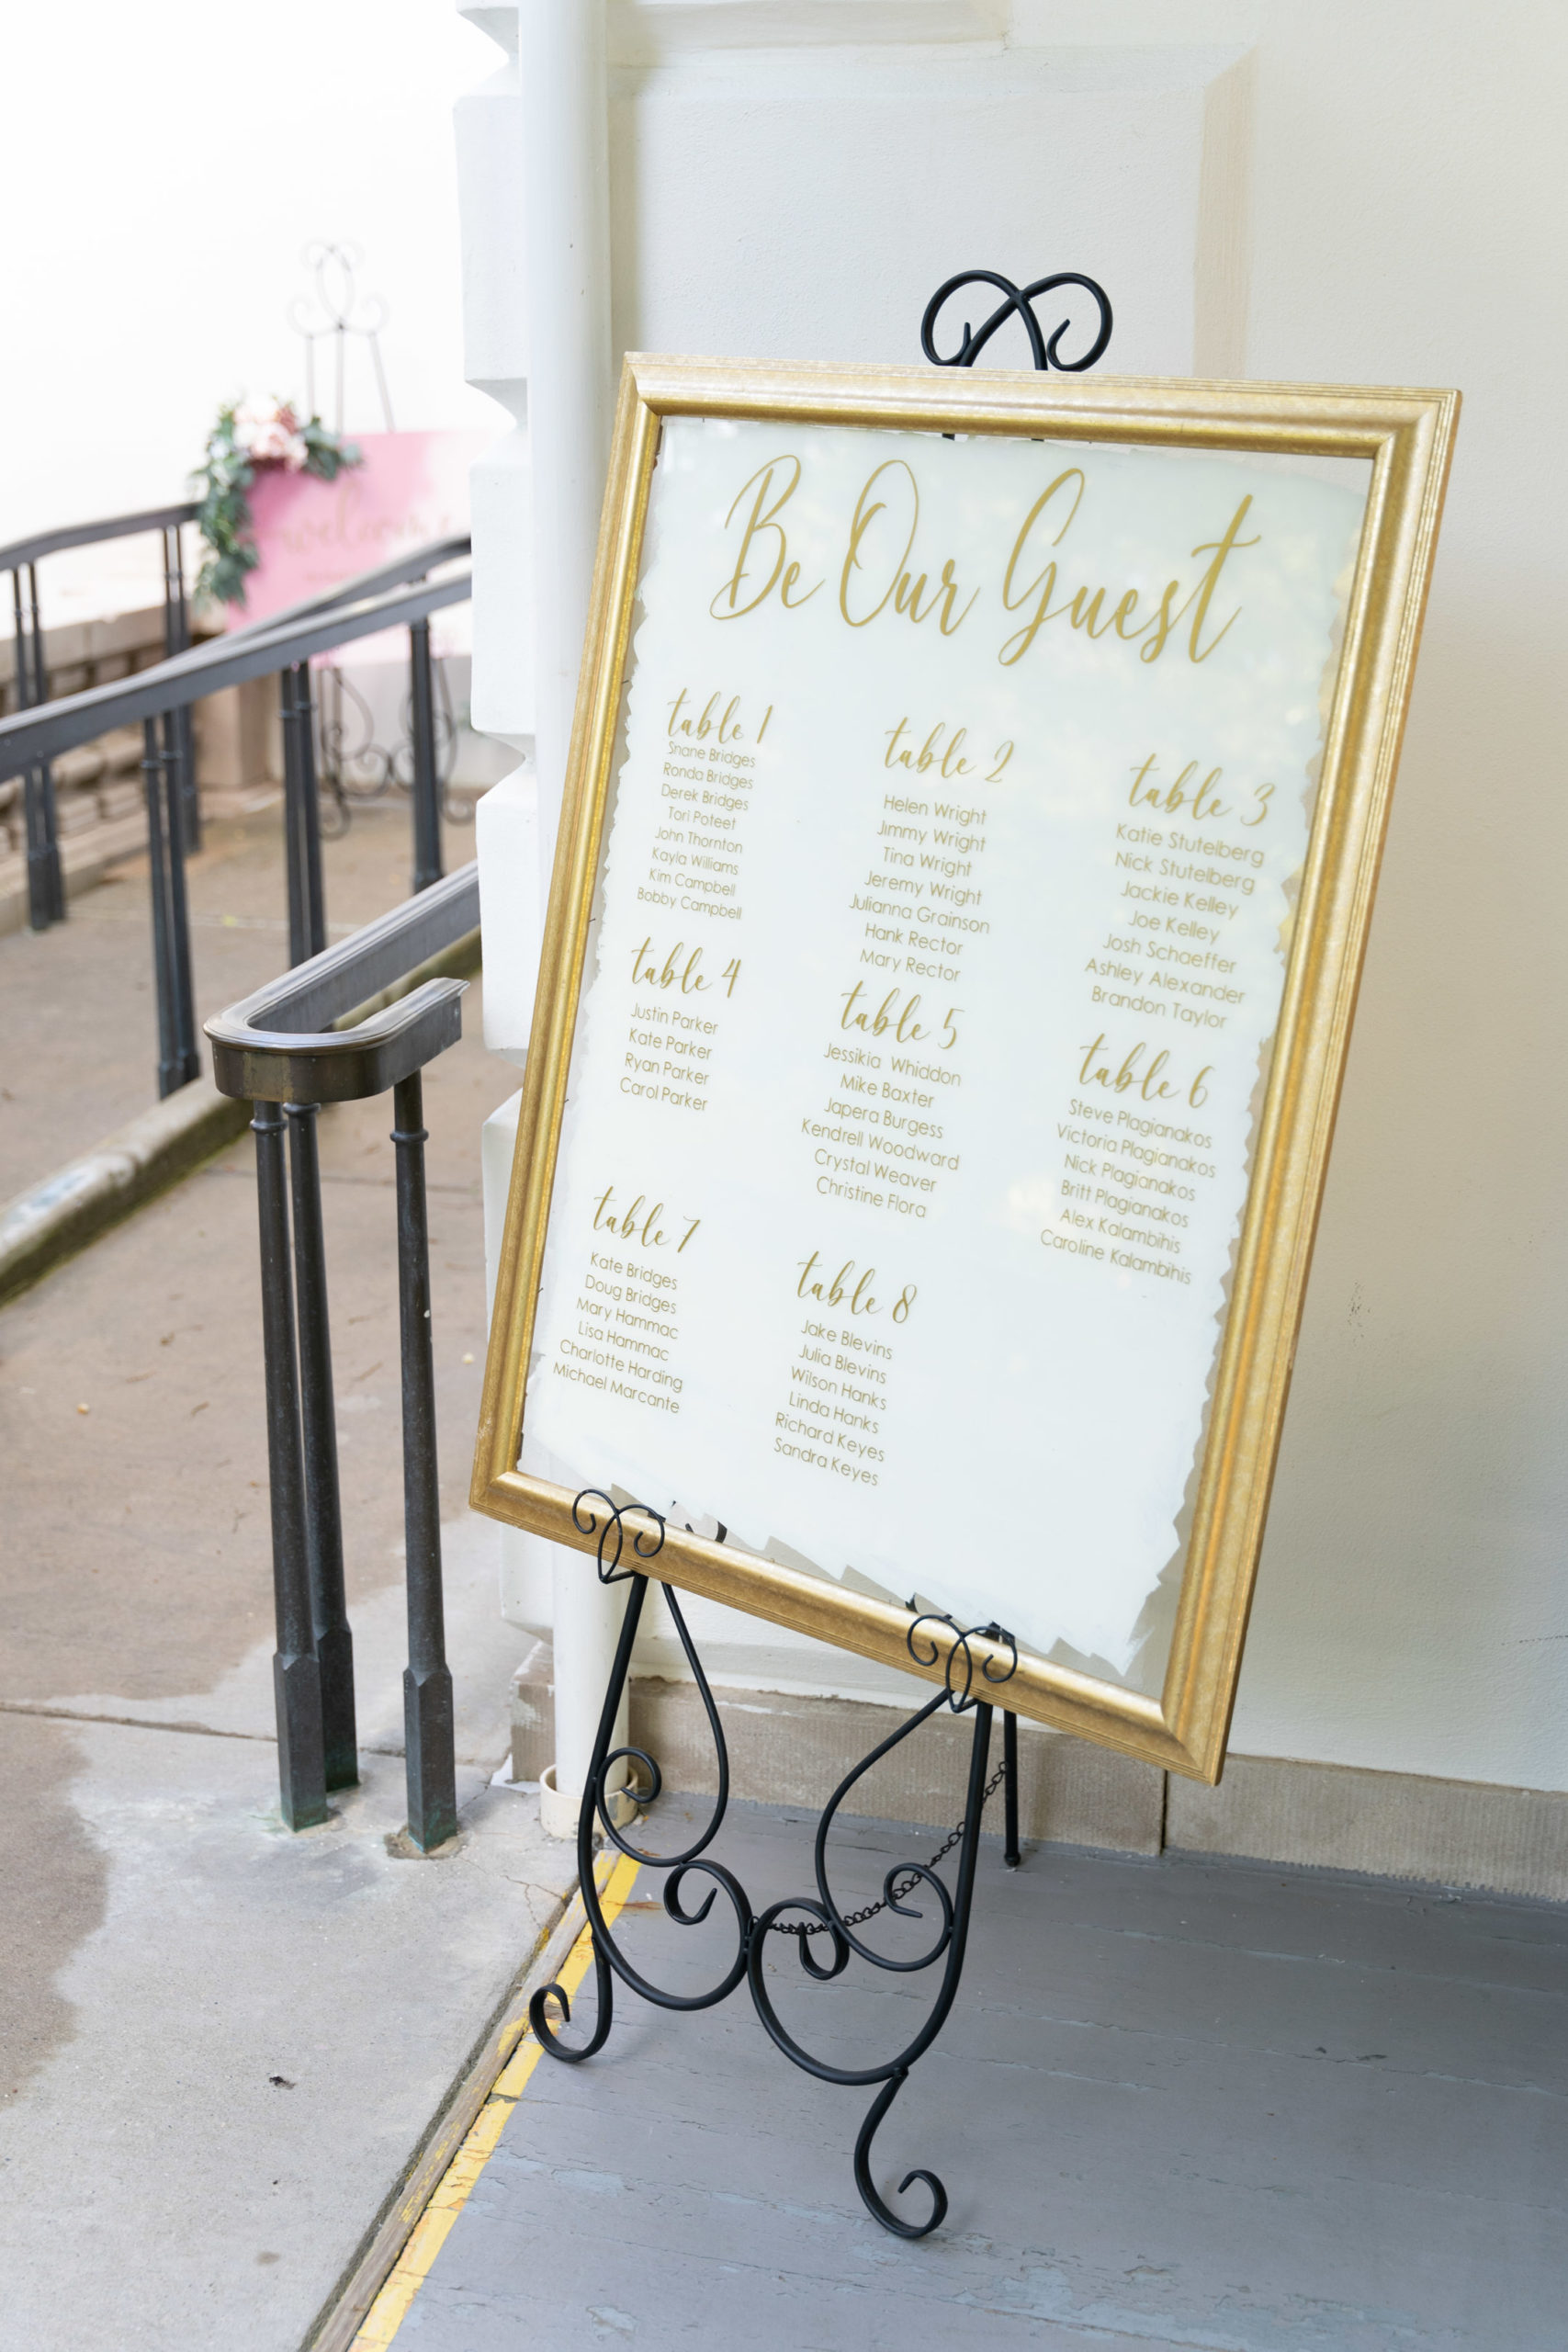 welcome
Be Our Guest
table 1
Shane Bridges
Ronda Bridges
Derek Bridges
Tori Poteet
John Thornton
Kayla Williams
Kim Campbell
Bobby Campbell
table 2
Helen Wright
Jimmy Wright
Tina Wright
Jeremy Wright
Julianna Grainson
Hank Rector
Mary Rector
table 3
Katie Stutelberg
Nick Stutelberg
Jackie Kelley
Joe Kelley
Josh Schaeffer
Ashley Alexander
Brandon Taylor
table 4
Justin Parker
Kate Parker
Ryan Parker
Carol Parker
table 5
Jessikia Whiddon
Mike Baxter
Japera Burgess
Kendrell Woodward
Crystal Weaver
Christine Flora
table 6
Steve Plagianakos
Victoria Plagianakos
Nick Plagianakos
Britt Plagianakos
Alex Kalambihis
Caroline Kalambihis
table 7
Kate Bridges
Doug Bridges
Mary Hammac
Lisa Hammac
Charlotte Harding
Michael Marcante
table 8
Jake Blevins
Julia Blevins
Wilson Hanks
Linda Hanks
Richard Keyes
Sandra Keyes